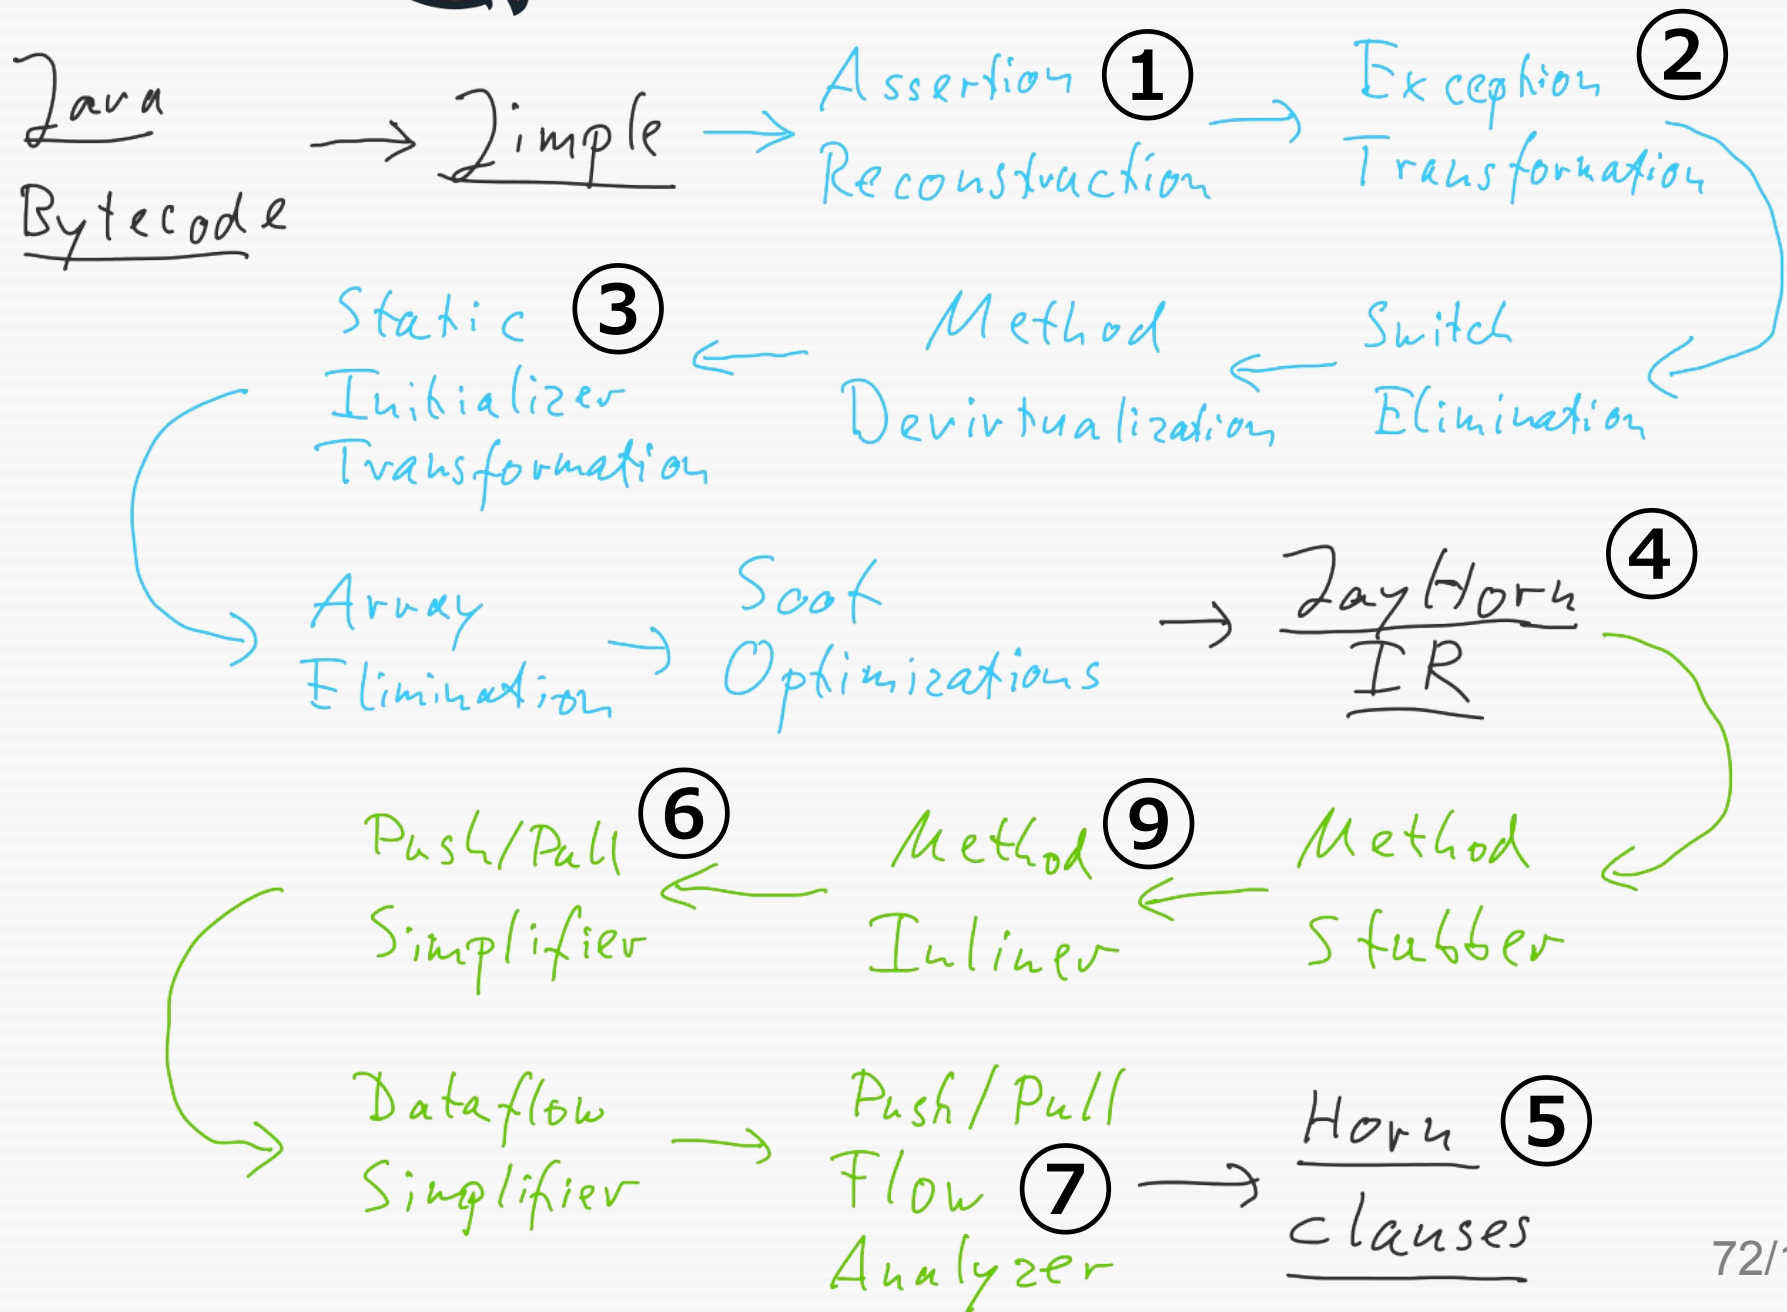 Java
Bytecode
→ Jimple →
Assertion ①
Reconstruction
→ Exception ②
Transformation
Switch
Elimination
← Method
Devirtualization
← Static ③
Initializer
Transformation
Array
Elimination
→ Soot
Optimizations
→ JayHorn ④
IR
Method
Stubber
← Method ⑨
Inliner
← Push/Pull ⑥
Simplifier
Dataflow
Simplifier
→ Push/Pull
Flow ⑦
Analyzer
→ Horn ⑤
clauses
72/